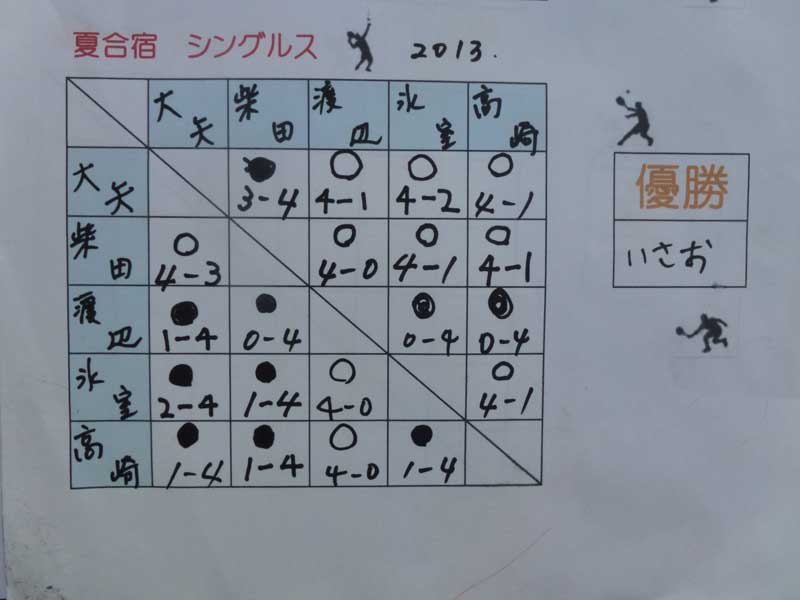 夏合宿 シングルス 2013.
大矢 柴田 渡辺 氷室 高崎
大矢 3-4 4-1 4-2 4-1
柴田 4-3 4-0 4-1 4-1
渡辺 1-4 0-4 0-4 0-4
氷室 2-4 1-4 4-0 4-1
高崎 1-4 1-4 4-0 1-4
優勝
いさお